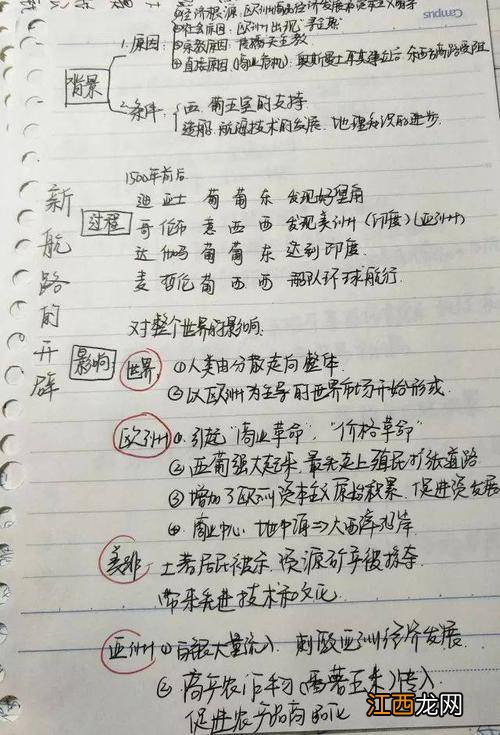 Campus
①经济根源:欧洲商品经济发展和资本主义萌芽
②社会原因:欧洲出现"寻金热"
1.原因:
③宗教原因:传播天主教
④直接原因(商业危机):奥斯曼土耳其建立后,东西方商路受阻
背景
2.条件:西、葡王室的支持.
造船、航海技术的发展、地理知识的进步.
新航路的开辟
1500年前后
过程
迪亚士 葡 葡 东 发现好望角
哥伦布 意 西 西 发现美洲(印度)(亚洲)
达伽马 葡 葡 东 达到印度.
麦哲伦 葡 西 西 船队环球航行.
对整个世界的影响:
影响
世界 ①人类由分散走向整体.
②以欧洲为主导的世界市场开始形成.
欧洲 ①.引起"商业革命","价格革命"
②西葡强大起来,最先走上殖民扩张道路
③增加了欧洲资本主义原始积累,促进资发展
④.商业中心:地中海⇒大西洋沿岸
美非 土著居民被杀,资源矿产被掠夺.
带来先进技术和文化.
亚洲 ①白银大量流入,刺激亚洲经济发展.
②高产农作物(番薯玉米)传入
促进农产品商品化
江西龙网